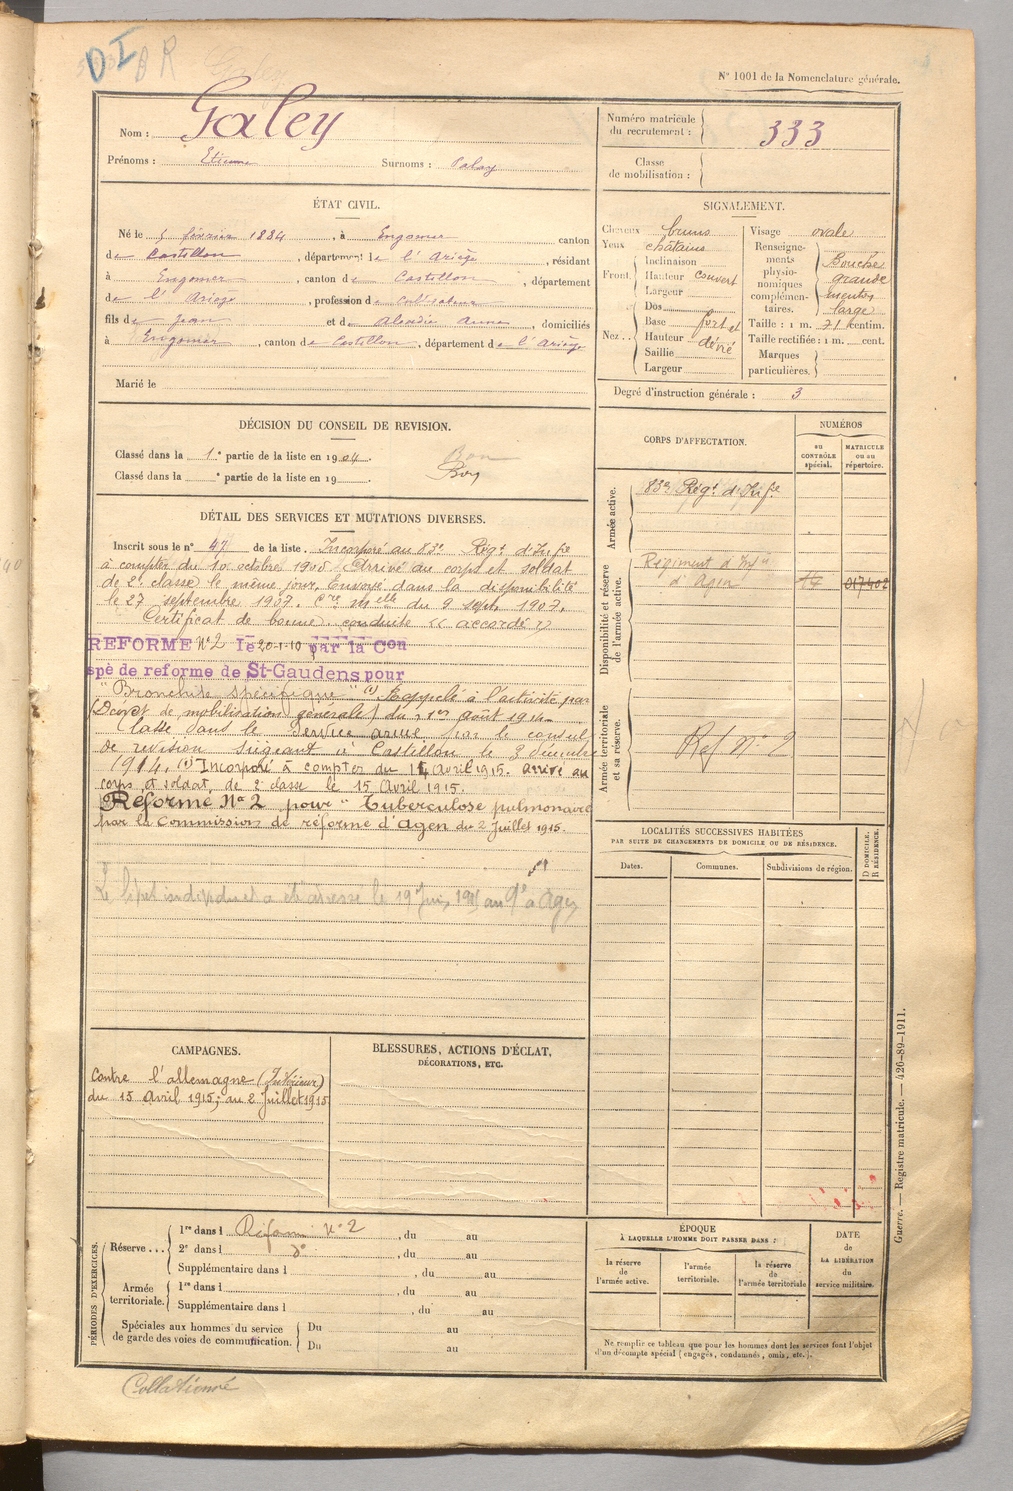 DI
N° 1001 de la Nomenclature générale.
Nom : Galey
Prénoms : Etienne Surnoms : Palay
Numéro matricule du recrutement : 333
Classe de mobilisation :
ÉTAT CIVIL.
Né le 5 février 1884, à Engomer canton
de Castillon, département de l'Ariège, résidant
à Engomer, canton de Castillon, département
de l'Ariège, profession de Cultivateur
fils de Jean et de Anne, domiciliés
à Engomer, canton de Castillon, département de l'Ariège
Marié le
SIGNALEMENT.
Cheveux bruns
Yeux châtains
Front. Inclinaison
Hauteur couvert
Largeur
Nez.. Dos
Base fort et
Hauteur dévié
Saillie
Largeur
Visage ovale
Renseignements physionomiques complémentaires. Bouche grande menton large
Taille : 1 m. 71 centim.
Taille rectifiée : 1 m. cent.
Marques particulières.
Degré d'instruction générale : 3
DÉCISION DU CONSEIL DE REVISION.
Classé dans la 1e partie de la liste en 1904. Bon
Classé dans la e partie de la liste en 19 Bon
CORPS D'AFFECTATION.
NUMÉROS
au CONTRÔLE spécial.
MATRICULE ou au répertoire.
Armée active.
83e Régt d'Infie
Disponibilité et réserve de l'armée active.
Régiment d'Infie
d'Agen 017402
Armée territoriale et sa réserve.
Ref N° 2
DÉTAIL DES SERVICES ET MUTATIONS DIVERSES.
Inscrit sous le n° 47 de la liste. Incorporé au 83e Régt d'Infie
à compter du 10 octobre 1905. Arrivé au corps et soldat
de 2e classe le même jour. Envoyé dans la disponibilité
le 27 septembre 1907. Cre Mlle du 9 Sept. 1907.
Certificat de bonne conduite « accordé »
REFORME N°2 le 20-1-10 par la Con
spé de reforme de St-Gaudens pour
"Bronchite spécifique" (1) Rappelé à l'activité par
(Décret de mobilisation générale) du 1er Août 1914.
Classé dans le Service armé par le conseil
de revision siégeant à Castillon le 3 décembre
1914. (1) Incorporé à compter du 14 Avril 1915. arrivé au
corps et soldat de 2e classe le 15 Avril 1915.
Réformé N° 2 pour "Tuberculose pulmonaire
par la Commission de réforme d'Agen du 2 Juillet 1915.
Le livret individuel a été adressé le 19 Juin au 9e à Agen
LOCALITÉS SUCCESSIVES HABITÉES
PAR SUITE DE CHANGEMENTS DE DOMICILE OU DE RÉSIDENCE.
Dates.
Communes.
Subdivisions de région.
D DOMICILE.
R RÉSIDENCE.
CAMPAGNES.
Contre l'allemagne (Intérieur)
du 15 Avril 1915; au 2 Juillet 1915
BLESSURES, ACTIONS D'ÉCLAT,
DÉCORATIONS, ETC.
PÉRIODES D'EXERCICES.
Réserve...
1re dans l Réformé N° 2, du au
2e dans l d°, du au
Supplémentaire dans l , du au
Armée territoriale.
1re dans l , du au
Supplémentaire dans l , du au
Spéciales aux hommes du service de garde des voies de communication.
Du au
Du au
ÉPOQUE
À LAQUELLE L'HOMME DOIT PASSER DANS :
la réserve de l'armée active.
l'armée territoriale.
la réserve de l'armée territoriale
DATE
de
LA LIBÉRATION
du
service militaire.
Ne remplir ce tableau que pour les hommes dont les services font l'objet
d'un décompte spécial (engagés, condamnés, omis, etc.).
Guerre. — Registre matricule. — 426-89-1911.
Collationné